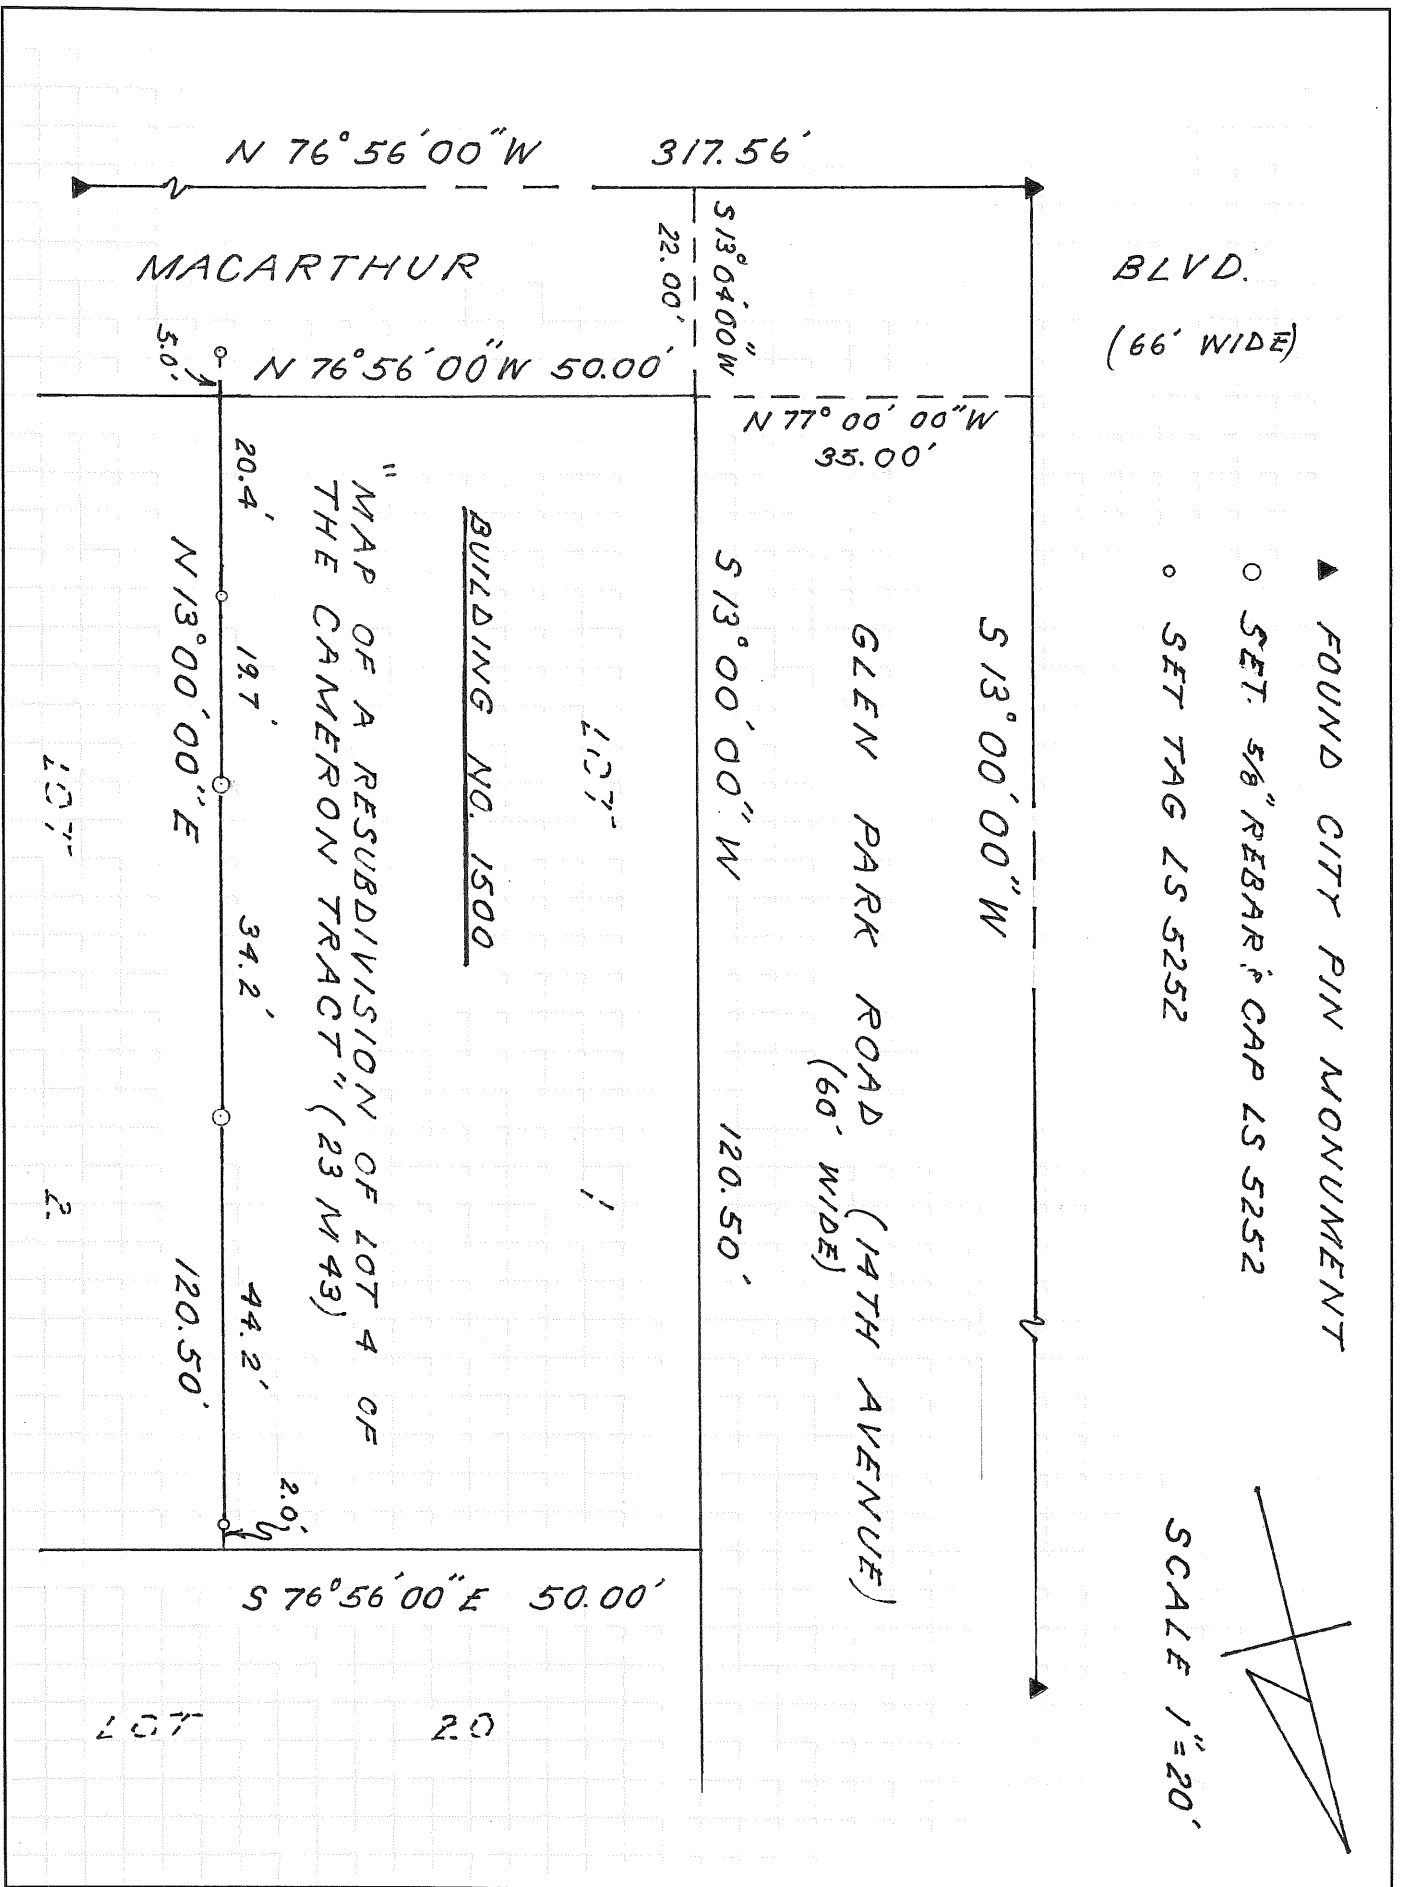 N 76° 56' 00" W 317.56'
MACARTHUR BLVD.
(66' WIDE)
S 13° 04' 00" W
22.00'
N 76° 56' 00" W 50.00'
5.0'
N 77° 00' 00" W
35.00'
▲ FOUND CITY PIN MONUMENT
○ SET 5/8" REBAR & CAP LS 5252
o SET TAG LS 5252
S 13° 00' 00" W
GLEN PARK ROAD (14TH AVENUE)
(60' WIDE)
S 13° 00' 00" W 120.50'
LOT 1
BUILDING NO. 1500
"MAP OF A RESUBDIVISION OF LOT 4 OF
THE CAMERON TRACT" (23 M 43)
20.4' 19.7' 34.2' 44.2' 2.0'
N 13° 00' 00" E 120.50'
LOT 2
S 76° 56' 00" E 50.00'
LOT 20
SCALE 1"=20'